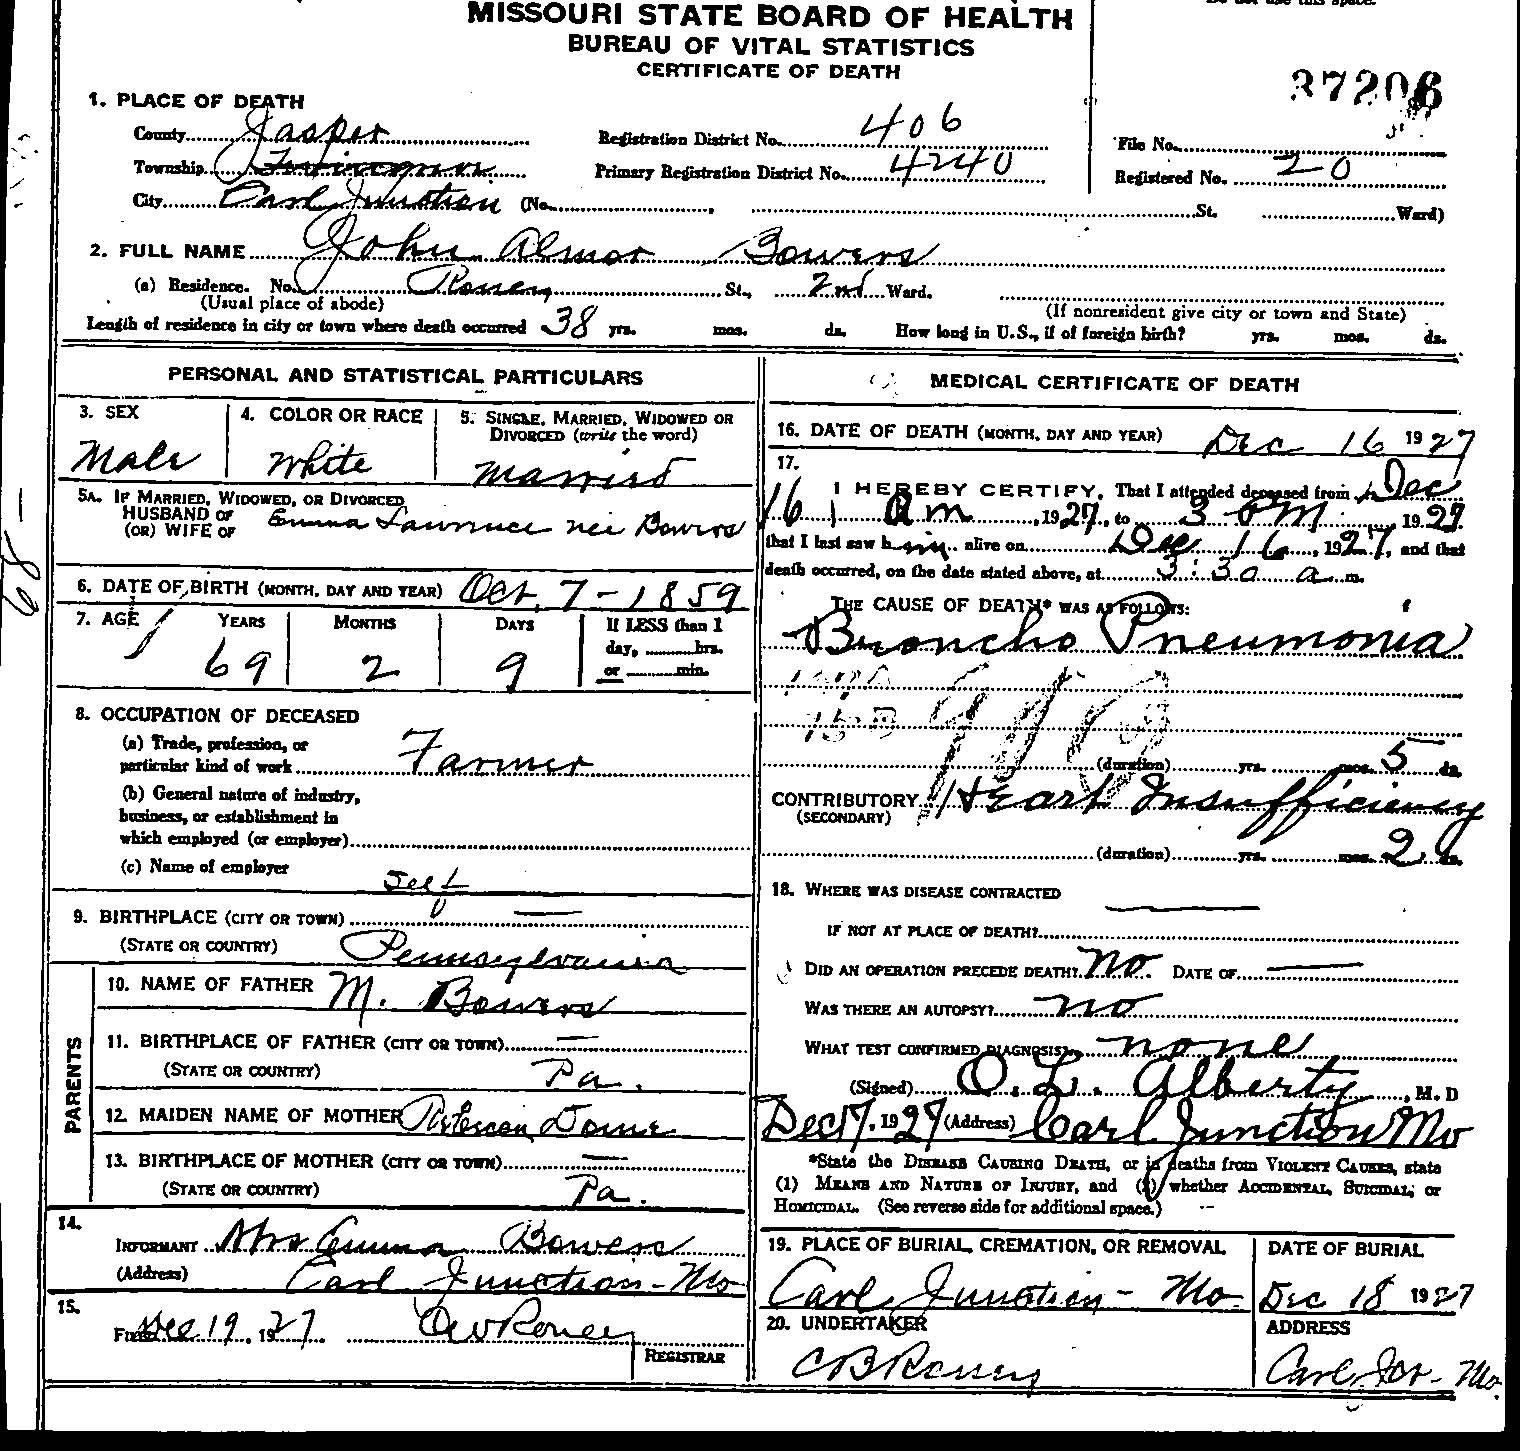 MISSOURI STATE BOARD OF HEALTH
BUREAU OF VITAL STATISTICS
CERTIFICATE OF DEATH
37206
1. PLACE OF DEATH
County Jasper Registration District No. 406 File No.
Township Primary Registration District No. 4240 Registered No. 20
City Carl Junction (No. , St. Ward)
2. FULL NAME John Almor Bowers
(a) Residence. No. Roney St., 2nd Ward.
(Usual place of abode) (If nonresident give city or town and State)
Length of residence in city or town where death occurred 38 yrs. mos. ds. How long in U.S., if of foreign birth? yrs. mos. ds.
PERSONAL AND STATISTICAL PARTICULARS
3. SEX 4. COLOR OR RACE 5. SINGLE, MARRIED, WIDOWED OR DIVORCED (write the word)
Male White Married
5A. IF MARRIED, WIDOWED, OR DIVORCED
HUSBAND OF Emma Lawrence nee Bowers
(OR) WIFE OF
6. DATE OF BIRTH (MONTH, DAY AND YEAR) Oct. 7 - 1859
7. AGE YEARS MONTHS DAYS If LESS than 1
day, hrs.
69 2 9 or min.
8. OCCUPATION OF DECEASED
(a) Trade, profession, or
particular kind of work Farmer
(b) General nature of industry,
business, or establishment in
which employed (or employer)
(c) Name of employer Self
9. BIRTHPLACE (CITY OR TOWN) —
(STATE OR COUNTRY) Pennsylvania
PARENTS
10. NAME OF FATHER M. Bowers
11. BIRTHPLACE OF FATHER (CITY OR TOWN) —
(STATE OR COUNTRY) Pa.
12. MAIDEN NAME OF MOTHER
13. BIRTHPLACE OF MOTHER (CITY OR TOWN) —
(STATE OR COUNTRY) Pa.
14.
INFORMANT Mrs Emma Bowers
(Address) Carl Junction - Mo
15.
Filed Dec 19, 1927. Roney
REGISTRAR
MEDICAL CERTIFICATE OF DEATH
16. DATE OF DEATH (MONTH, DAY AND YEAR) Dec 16 1927
17.
I HEREBY CERTIFY, That I attended deceased from Dec
16 1 am, 1927, to 3 , 1927.
that I last saw him alive on Dec 16, 1927, and that
death occurred, on the date stated above, at 3:30 a m.
THE CAUSE OF DEATH* WAS AS FOLLOWS:
Broncho Pneumonia
(duration) yrs. mos. 5 ds.
CONTRIBUTORY Heart Insufficiency
(SECONDARY)
(duration) yrs. mos. 2 ds.
18. WHERE WAS DISEASE CONTRACTED —
IF NOT AT PLACE OF DEATH?
DID AN OPERATION PRECEDE DEATH? No. DATE OF —
WAS THERE AN AUTOPSY? no
WHAT TEST CONFIRMED DIAGNOSIS? none
(Signed) O. L. Alberty, M. D
Dec 17, 1927 (Address) Carl Junction Mo
*State the DISEASE CAUSING DEATH, or in deaths from VIOLENT CAUSES, state
(1) MEANS AND NATURE OF INJURY, and (2) whether ACCIDENTAL, SUICIDAL, or
HOMICIDAL. (See reverse side for additional space.)
19. PLACE OF BURIAL, CREMATION, OR REMOVAL DATE OF BURIAL
Carl Junction - Mo. Dec 18 1927
20. UNDERTAKER ADDRESS
CB Roney Carl Jct - Mo.